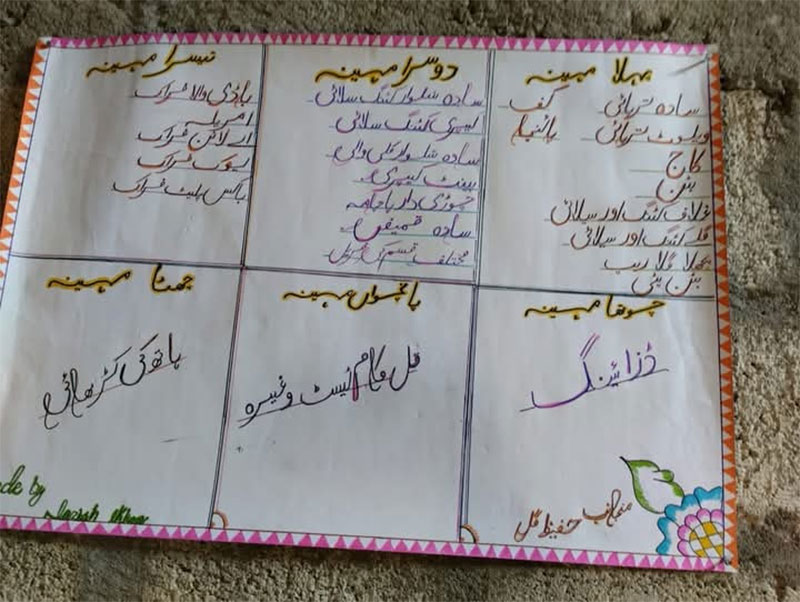 پہلا مہینہ
سادہ ترپائی کف
ویلوٹ ترپائی پائنچا
کاج
بٹن
غلاف کٹنگ اور سلائی
گلے کٹنگ اور سلائی
پچھلا گلا
بٹن پٹی
دوسرا مہینہ
سادہ شلوار کٹنگ سلائی
کیپری کٹنگ سلائی
سادہ شلوار کلی والی
پینٹ کیپری
چوڑی دار پاجامہ
سادہ قمیض
مختلف قسم کے
تیسرا مہینہ
باڈی والا فراک
امبریلہ
اے لائن فراک
فراک
باکس پلیٹ فراک
چوتھا مہینہ
ڈزائینگ
پانچواں مہینہ
فل کام ٹیسٹ وغیرہ
چھٹا مہینہ
ہاتھ کی کڑھائی
منجانب حفیظ گل
de by